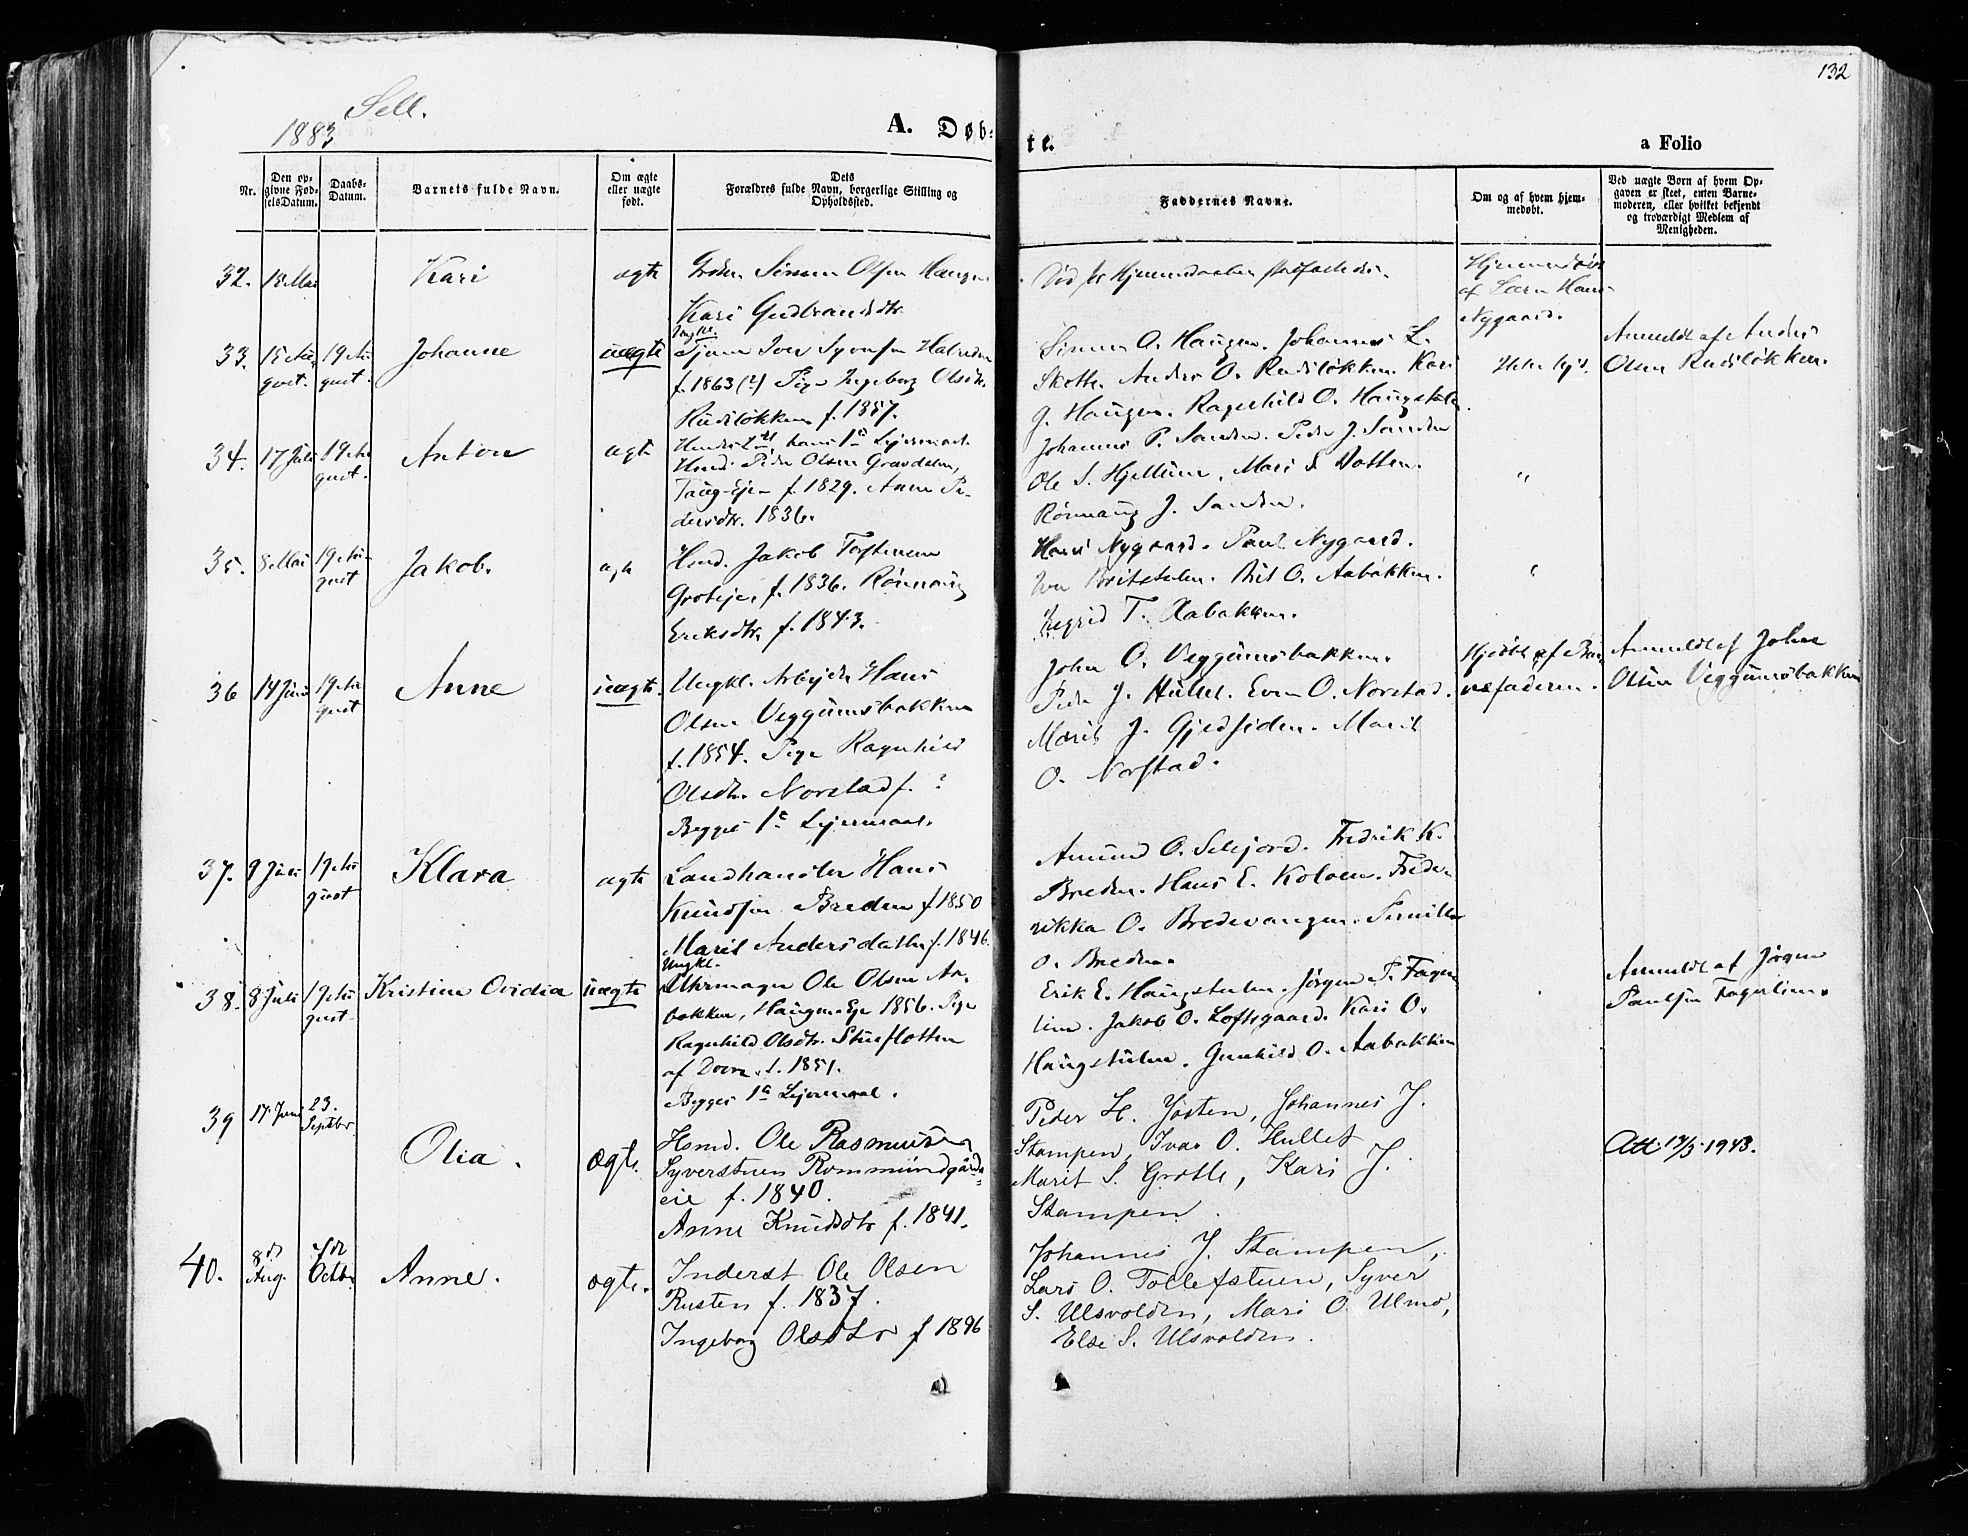 132
Sell.
1883
A. Døb-
te.
a Folio
Nr.
Den op-
givne Fød-
selsDatum.
Daabs-
Datum.
Barnets fulde Navn.
Om ægte
eller uægte
født.
Dets
Forældres fulde Navn, borgerlige Stilling og
Opholdssted.
Faddernes Navne.
Om og af hvem hjem-
medøbt.
Ved uægte Børn af hvem Op-
gaven er skeet, enten Barne-
moderen, eller hvilket bekjendt
og troværdigt Medlem af
Menigheden.
32. 18 Mai Kari ægte Simen Olsen Haugen
Kari Gudbrandsdtr.
Hjemmedøbt
af Hans
Nygaard.
33. 15 Au-
gust. 19 Au-
gust. Johanne uægte
Ungkl.
Tjener Iver Syversen
f. 1863 (?) Pige Ingeborg Olsdtr.
Rudiløkken f. 1857.
Hendes 2det hans 1ste Lejermaal.
Simen O. Haugen. Johannes L.
Skotte. Anders O. Rudiløkken. Kari
J. Haugen. Ragnhild O. Haugstulen.
Ikke hjd.
Anmeldt af Anders
Olsen Rudiløkken.
34. 17 Juli 19 Au-
gust. Anton ægte
Hmd. Peder Olsen Gravdalen,
Taug-Eje f. 1829. Anne Pe-
dersdtr. 1836.
Johannes P. Sanden. Peder J. Sanden
Ole S. Hjellum, Mari S. Botten.
Rønnaug J. Sanden.
"
35. 8 Mai 19 Au-
gust Jakob. ægte
Hmd. Jakob Toftemoen
Groteje, f. 1836. Rønnaug
Eriksdtr. f. 1843.
Hans Nygaard. Paul Nygaard.
Iver Britstulen. Brit O. Aabakken.
Ingrid T. Aabakken.
"
36 14 Juni 19 Au-
gust Anne uægte.
Ungkl. Arbejder Hans
Olsen Veggumsbakken
f. 1854. Pige Ragnhild
Olsdtr. Norstad f. ?
Begges 1ste Lejermaal.
John O. Veggumsbakken.
Peder J. Hullet. Even O. Norstad.
Marit J. Gjedsiden. Marit
O. Norstad.
Hjdøbt af Bar-
nefaderen.
Anmeldt af John
Olsen Veggumsbakken
37. 9 Juni 19 Au-
gust Klara ægte
Landhandler Hans
Knudsen Breden f 1850
Marit Andersdatter f. 1846.
Amund O. Selsjord. Fredrik K.
Breden. Hans E. Koloen. Frede-
rikka O. Bredevangen. Pernille
O. Breden.
38. 8 Juli 19 Au-
gust. Kristine Ovidia uægte
Ungkl.
Uhrmager Ole Olsen Aa-
bakken, Haugen-Eje 1856. Pige
Ragnhild Olsdtr. Stueflotten
af Dovre f. 1851.
Begges 1ste Lejermaal.
Erik E. Haugstulen. Jørgen P. Fager-
lien. Jakob O. Loftsgaard. Kari O.
Haugstulen. Gunhild O. Aabakken
Anmeldt af Jørgen
Paulsen Fagerlien.
39 17 Juni 23.
Septbr. Olia. ægte.
Hsmd. Ole Rasmussen
Syverstuen Rommundgård-
eie f. 1840.
Anne Knudsdtr f. 1841.
Peder H. Josten, Johannes J.
Stampen, Ivar O. Hullet
Marit S. Grotte, Kari J.
Stampen.
Att. 13/5 1943.
40. 8de
Aug. 7de
Octbr. Anne. ægte.
Inderst Ole Olsen
Rusten f. 1837.
Ingeborg Olsdtr f 1846
Johannes J. Stampen,
Lars O. Tollefstuen, Syver
S. Ulsvolden, Mari O. Ulmo,
Else S. Ulsvolden.